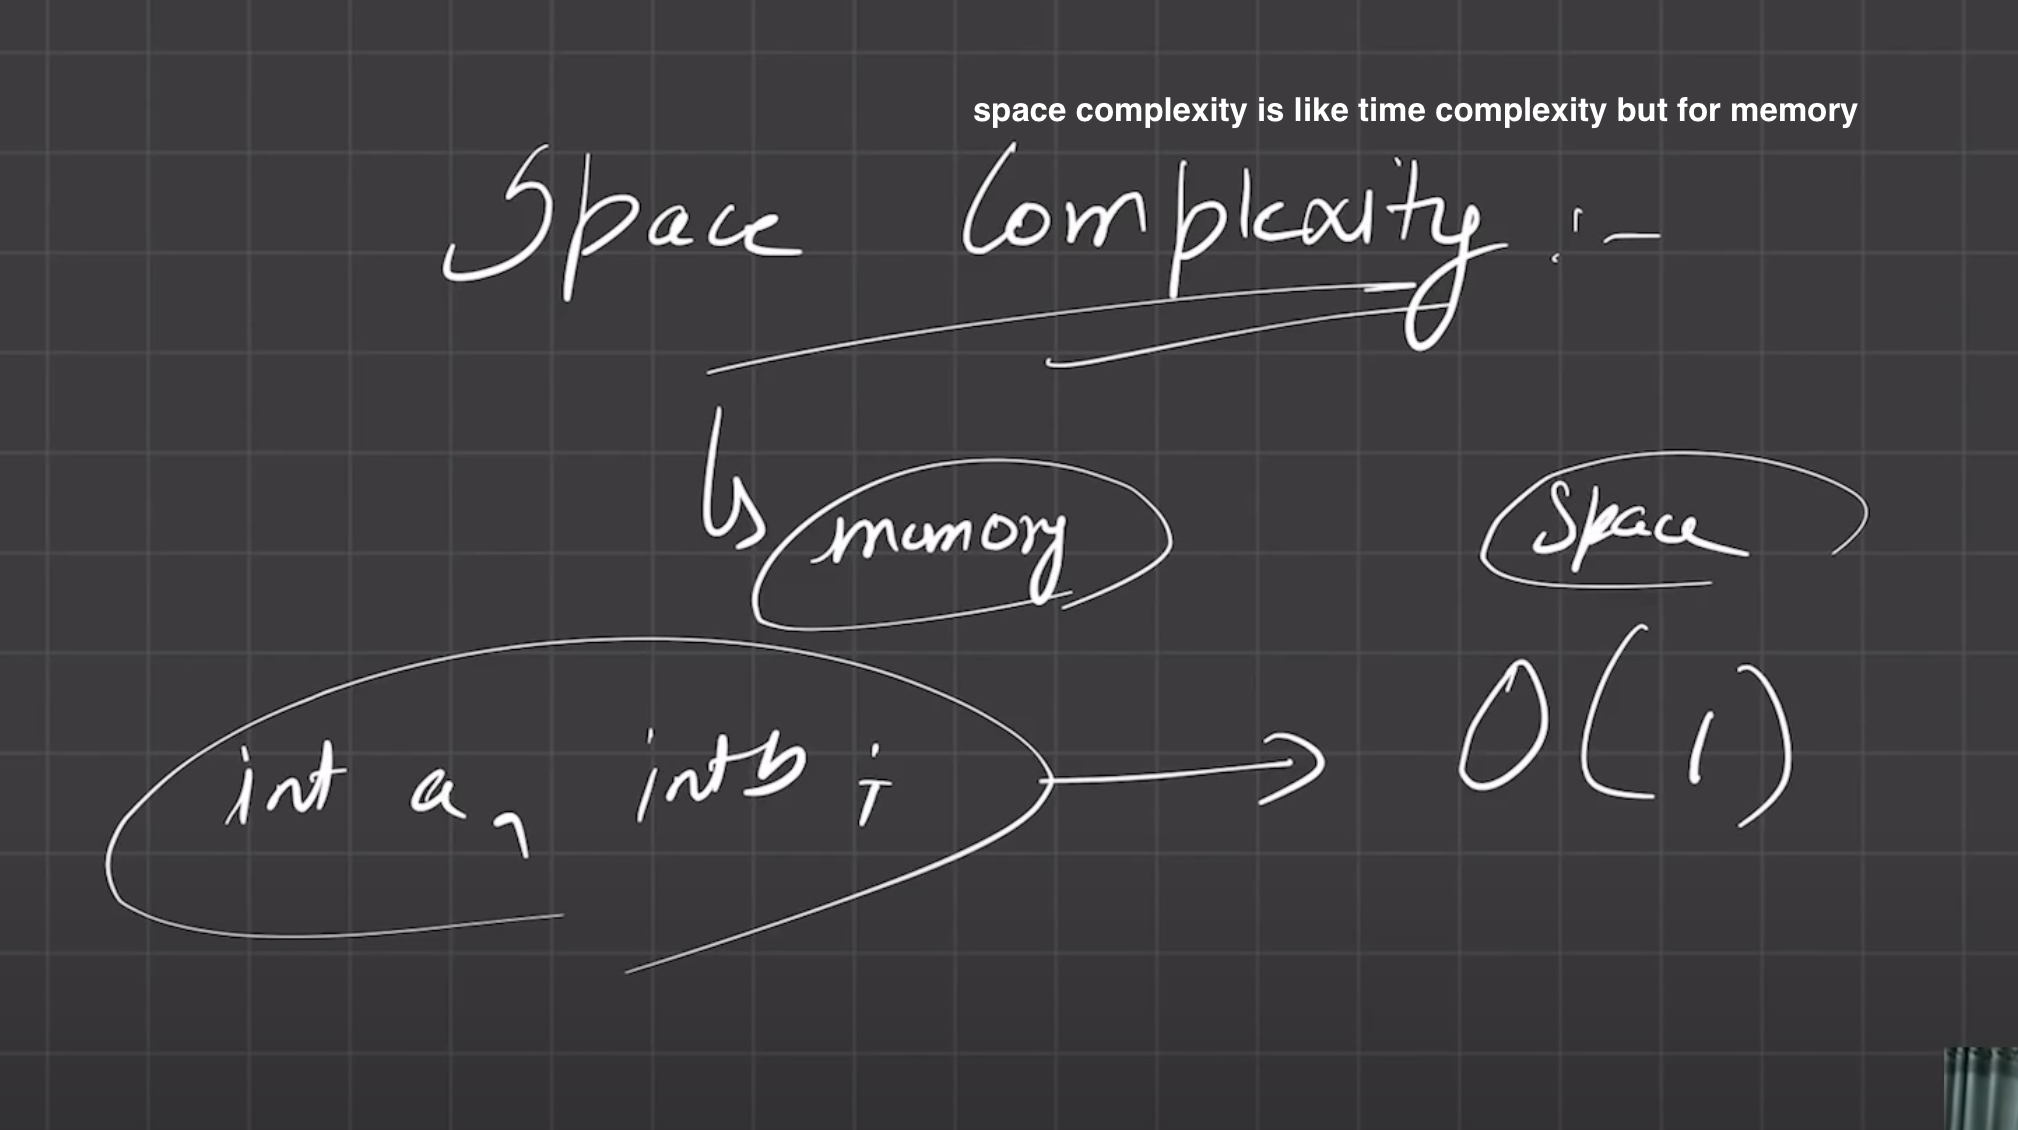 space complexity is like time complexity but for memory
Space Complexity :-
memory
Space
int a, int b ;
O(1)